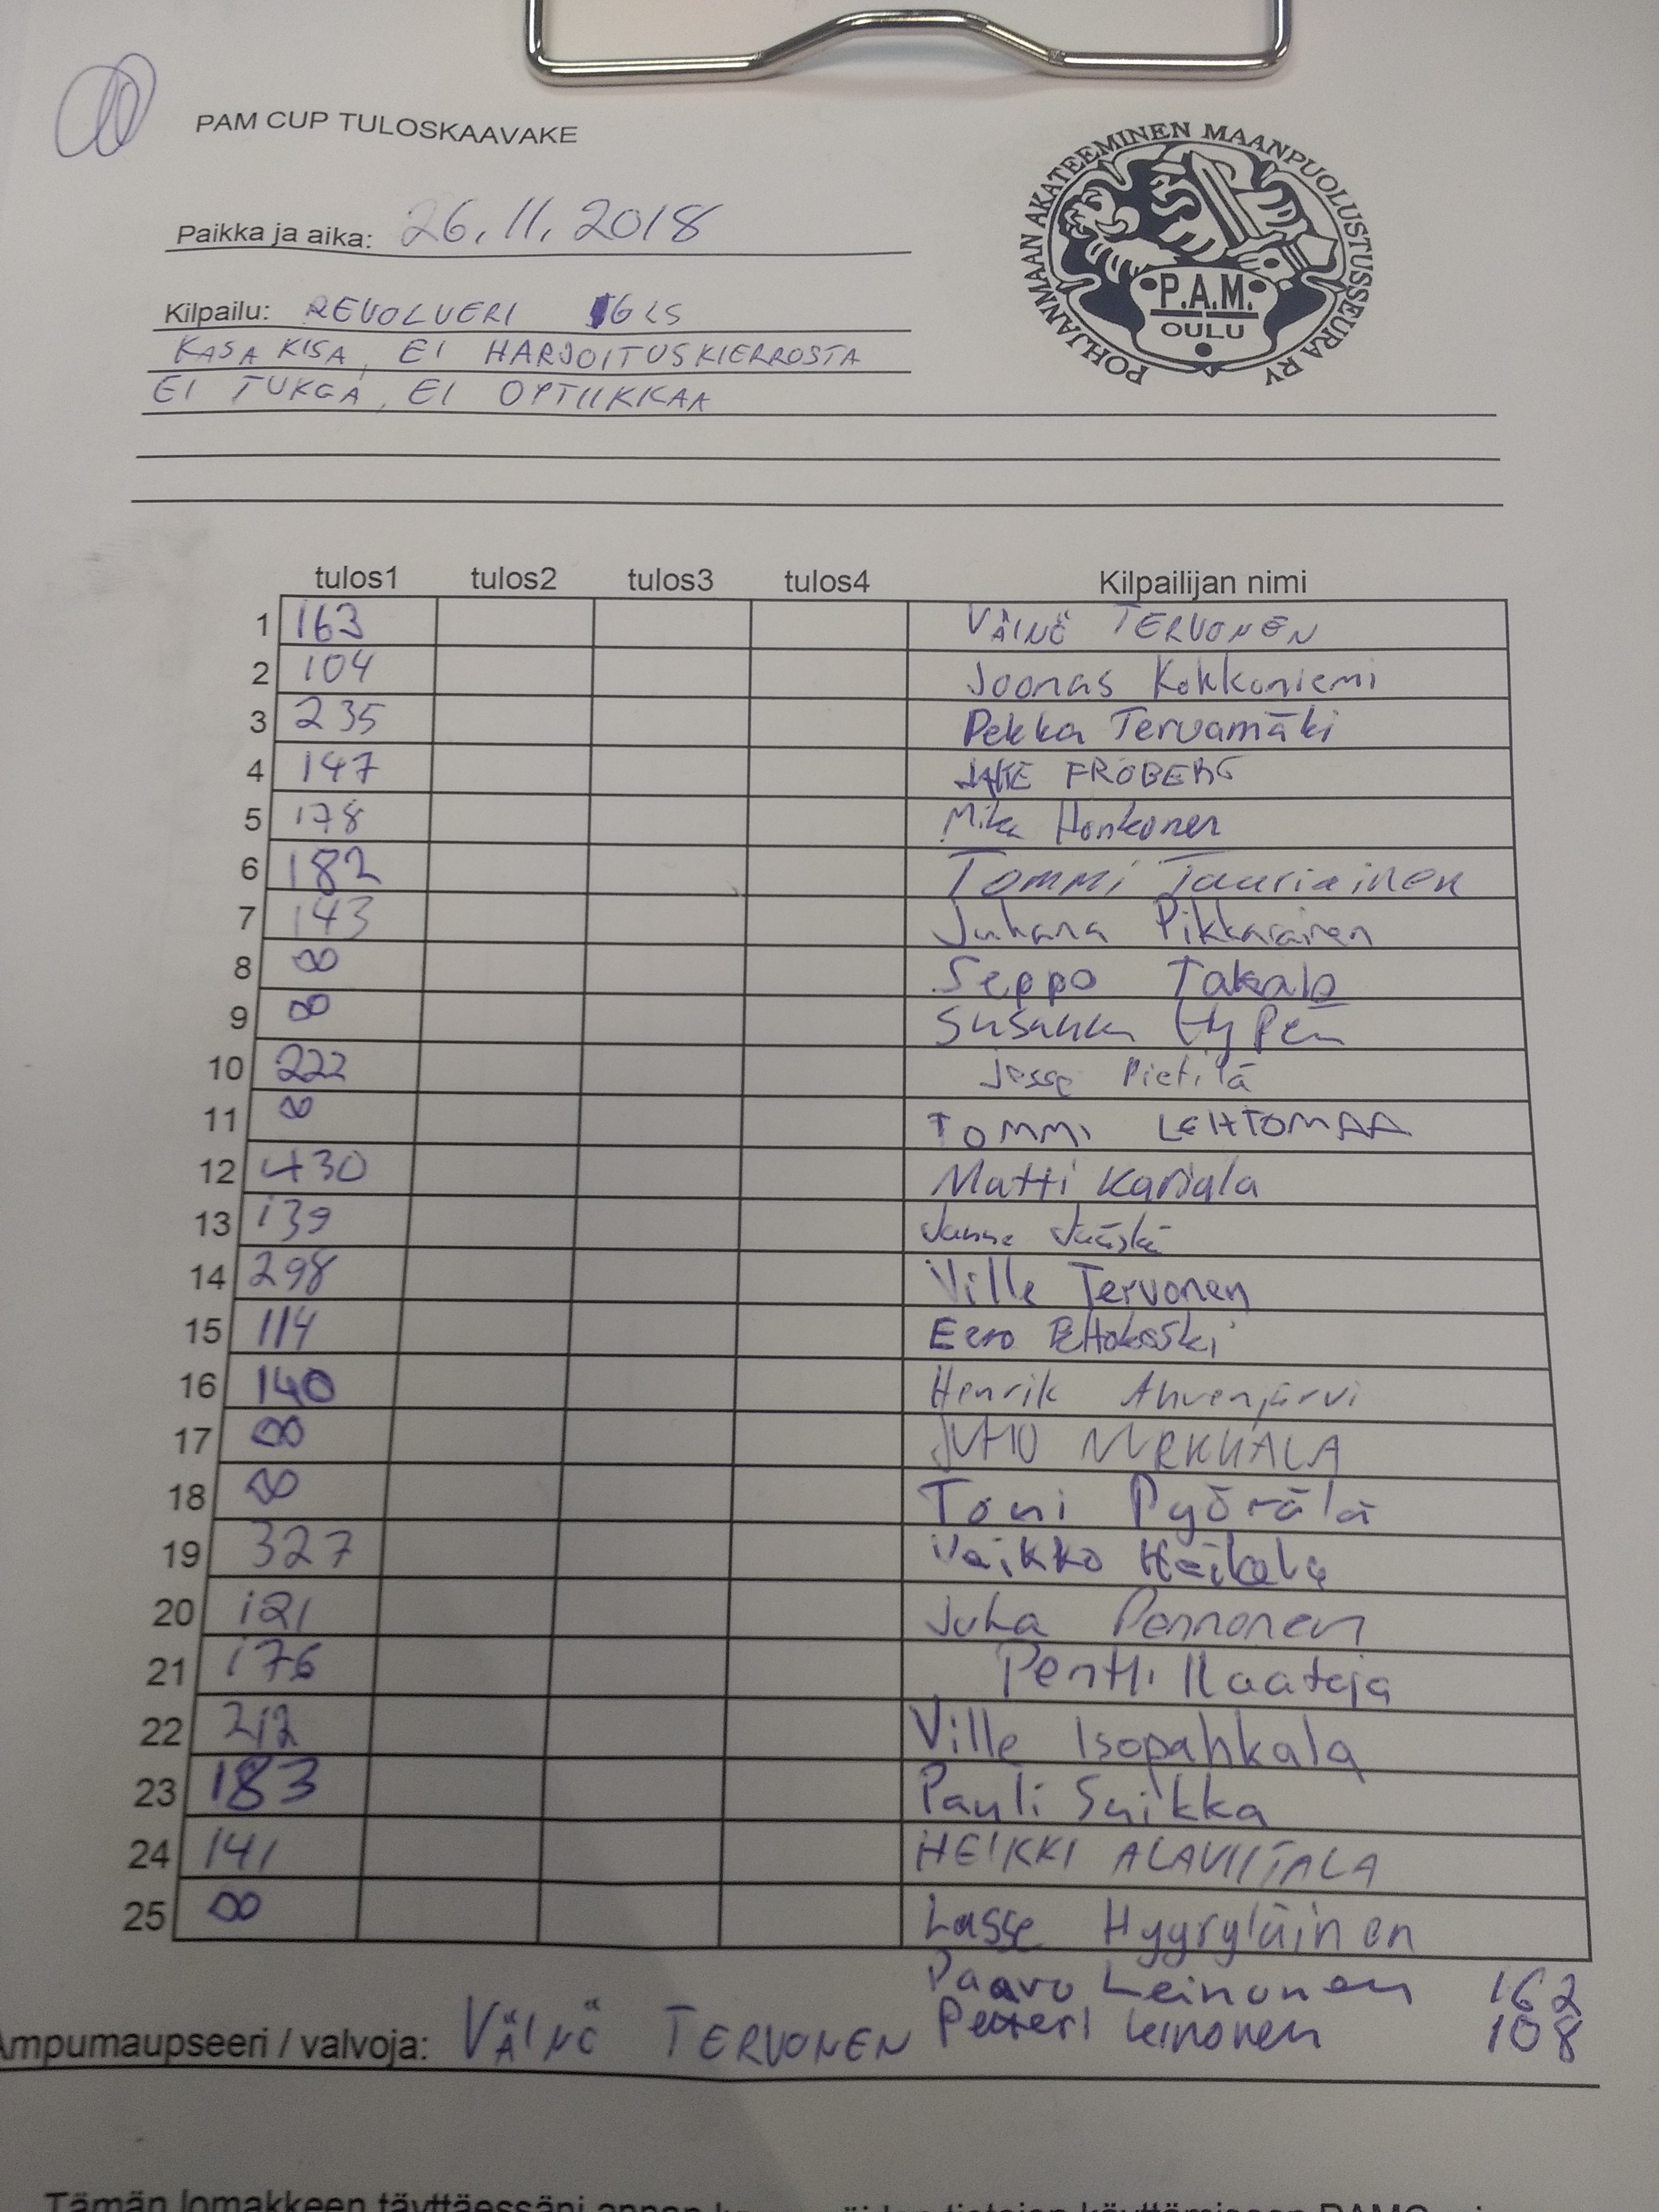 PAM CUP TULOSKAAVAKE
POHJANMAAN AKATEEMINEN MAANPUOLUSTUSSEURA RY
P.A.M.
OULU
Paikka ja aika: 26.11.2018
Kilpailu: REVOLVERI 6 LS
KASAKISA, EI HARJOITUSKIERROSTA
EI TUKEA, EI OPTIIKKAA
tulos1 tulos2 tulos3 tulos4 Kilpailijan nimi
1 163 VÄINÖ TERVONEN
2 104 Joonas Kokkoniemi
3 235 Pekka Tervamäki
4 147 FRÖBERG
5 178 Mika Honkonen
6 182 Tommi Tauriainen
7 143 Juhana Pikkarainen
8 ∞ Seppo Takalo
9 ∞ Susanna
10 222 Jesse Pietilä
11 ∞ TOMMI LEHTOMAA
12 430 Matti Karjala
13 139 Janne Jääskä
14 298 Ville Tervonen
15 114 Eero
16 140 Henrik Ahvenjärvi
17 ∞ JUHO NURKKALA
18 ∞ Toni Pyörälä
19 327 Veikko Heikala
20 121 Juha Pennanen
21 176 Pentti Raateja
22 212 Ville Isopahkala
23 183 Pauli Suikka
24 141 HEIKKI ALAVIITALA
25 ∞ Lasse Hyyryläinen
Paavo Leinonen 162
Petteri Leinonen 108
Ampumaupseeri / valvoja: VÄINÖ TERVONEN
Tämän lomakkeen täyttäessäni annan